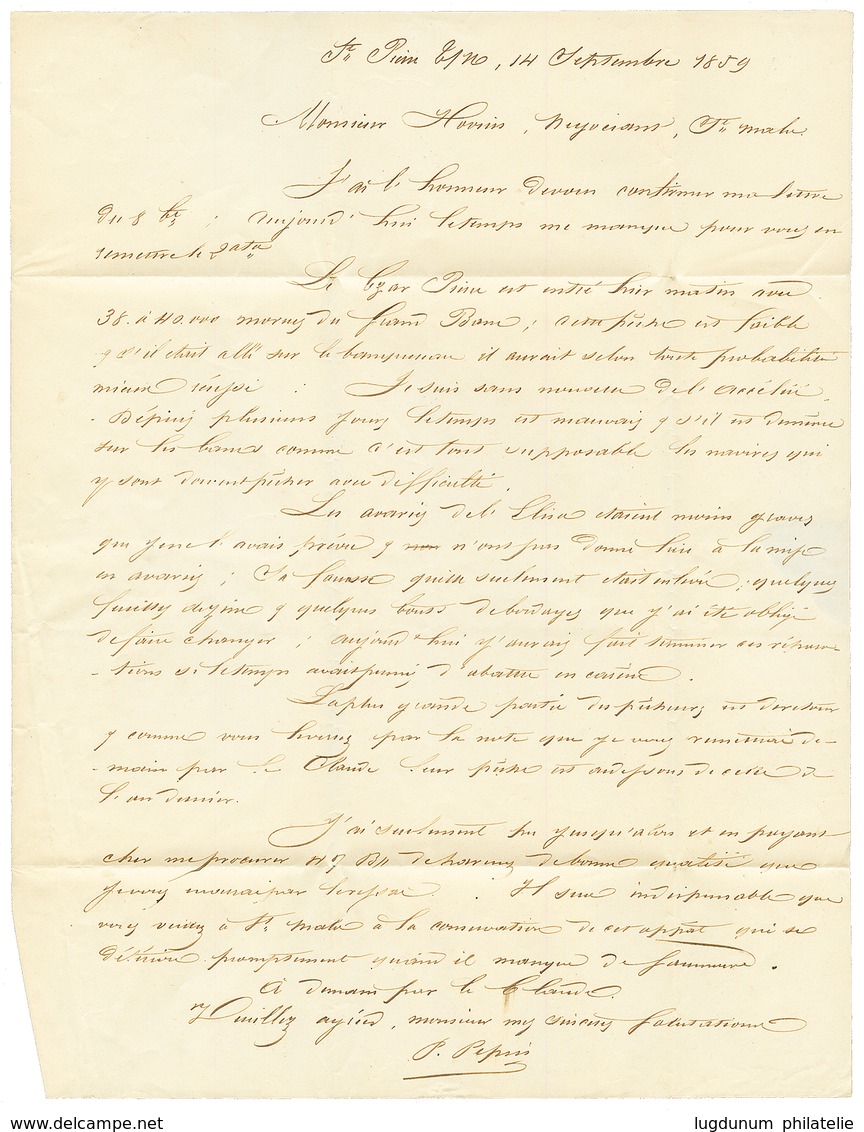 St Pierre T/N, 14 Septembre 1859
Monsieur Hovius, Négociant, St malo.
J'ai l'honneur devous confirmer ma lettre
du 8 bre; aujourd'hui letemps me manque pour vous en
remettre le Data
Le Czar Pierre est entré hier matin avec
38. à 40.000 morues du Grand Banc; cette pêche est faible
& s'il était allé sur le banquereau il aurait selon toute probabilité
mieux réussi. Je suis sans nouvelle de l'
Depuis plusieurs jours letemps est mauvais & s'il est demême
sur les bancs comme c'est tout supposable les navires qui
y sont doivent pêcher avec difficulté.
Les avaries de l'Elisa étaient moins graves
que je ne l'avais prévu & n'ont pas donné lieu à la mise
en avaries; Sa fausse quille seulement était enlevée; quelques
feuilles de zinc & quelques bouts debordages que j'ai été obligé
defaire changer; aujourd'hui j'aurais fait terminer ces répara-
-tions si letemps avait permis d'abattre en carène.
Laplus grande partie des pêcheurs est deretour
& comme vous verrez par la note que je vous remettrai de-
-main par le Claude leur pêche est audessous decelle de
l'an dernier.
J'ai seulement pu jusqu'alors et en payant
cher me procurer 47 Bls deharengs debonne qualité que
je vous par . Il sera indispensable que
vous veillez à St malo à la conservation de cet appât qui se
détériore promptement quand il manque de saumure.
à demain par le Claude.
Veuillez agréer, monsieur mes sincères salutations
P. Pepin
delcampe.net
lugdunum philatelie